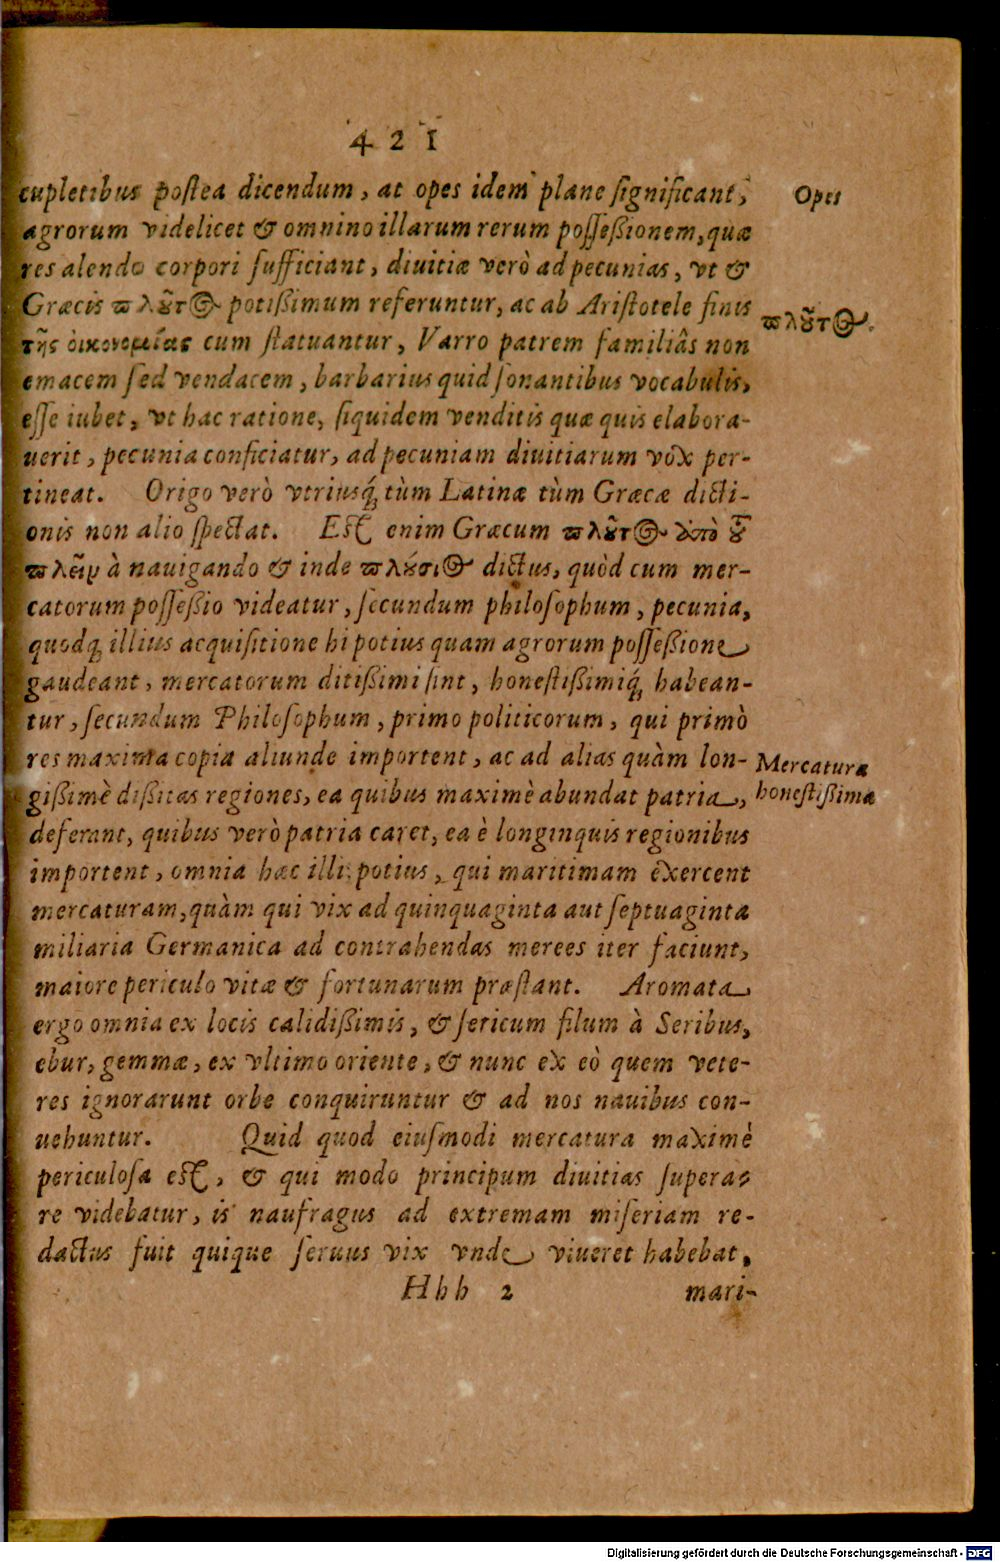 421
cupletibus poſtea dicendum, at opes idem plane ſignificant,
Opes
agrorum videlicet & omnino illarum rerum poſſeßionem, quæ
res alendo corpori ſufficiant, diuitiæ verò ad pecunias, vt &
Græcis ϖλȣ̃τος potißimum referuntur, ac ab Ariſtotele finis
ϖλȣ̃τος.
τῆς ὀικονομίας cum ſtatuantur, Varro patrem familiâs non
emacem ſed vendacem, barbarius quid ſonantibus vocabulis,
eſſe iubet, vt hac ratione, ſiquidem venditis quæ quis elabora-
uerit, pecunia conficiatur, ad pecuniam diuitiarum vox per-
tineat. Origo verò vtriusq́; tùm Latinæ tùm Græcæ dicti-
onis non alio ſpectat. Eſt enim Græcum ϖλȣ̃τος ἀπὸ τȣ̃
ϖλεῖν à nauigando & inde ϖλȣ́σιος dictus, quòd cum mer-
catorum poſſeßio videatur, ſecundum philoſophum, pecunia,
quodq; illius acquiſitione hi potius quam agrorum poſſeßione
gaudeant, mercatorum ditißimi ſint, honeſtißimiq́; habean-
tur, ſecundum Philoſophum, primo politicorum, qui primò
res maxima copia aliunde importent, ac ad alias quàm lon-
Mercatura
gißimè dißitas regiones, ea quibus maximè abundat patria,
honeſtißima
deferant, quibus verò patria caret, ea è longinquis regionibus
importent, omnia hæc illi potius, qui maritimam exercent
mercaturam, quàm qui vix ad quinquaginta aut ſeptuaginta
miliaria Germanica ad contrahendas merees iter faciunt,
maiore periculo vitæ & fortunarum præſtant. Aromata
ergo omnia ex locis calidißimis, & ſericum filum à Seribus,
ebur, gemmæ, ex vltimo oriente, & nunc ex eò quem vete-
res ignorarunt orbe conquiruntur & ad nos nauibus con-
uehuntur. Quid quod eiuſmodi mercatura maximè
periculoſa eſt, & qui modo principum diuitias ſupera-
re videbatur, is naufragus ad extremam miſeriam re-
dactus fuit quique ſeruus vix vnde viueret habebat,
Hhh 2
mari-
Digitalisierung gefördert durch die Deutsche Forschungsgemeinschaft - DFG